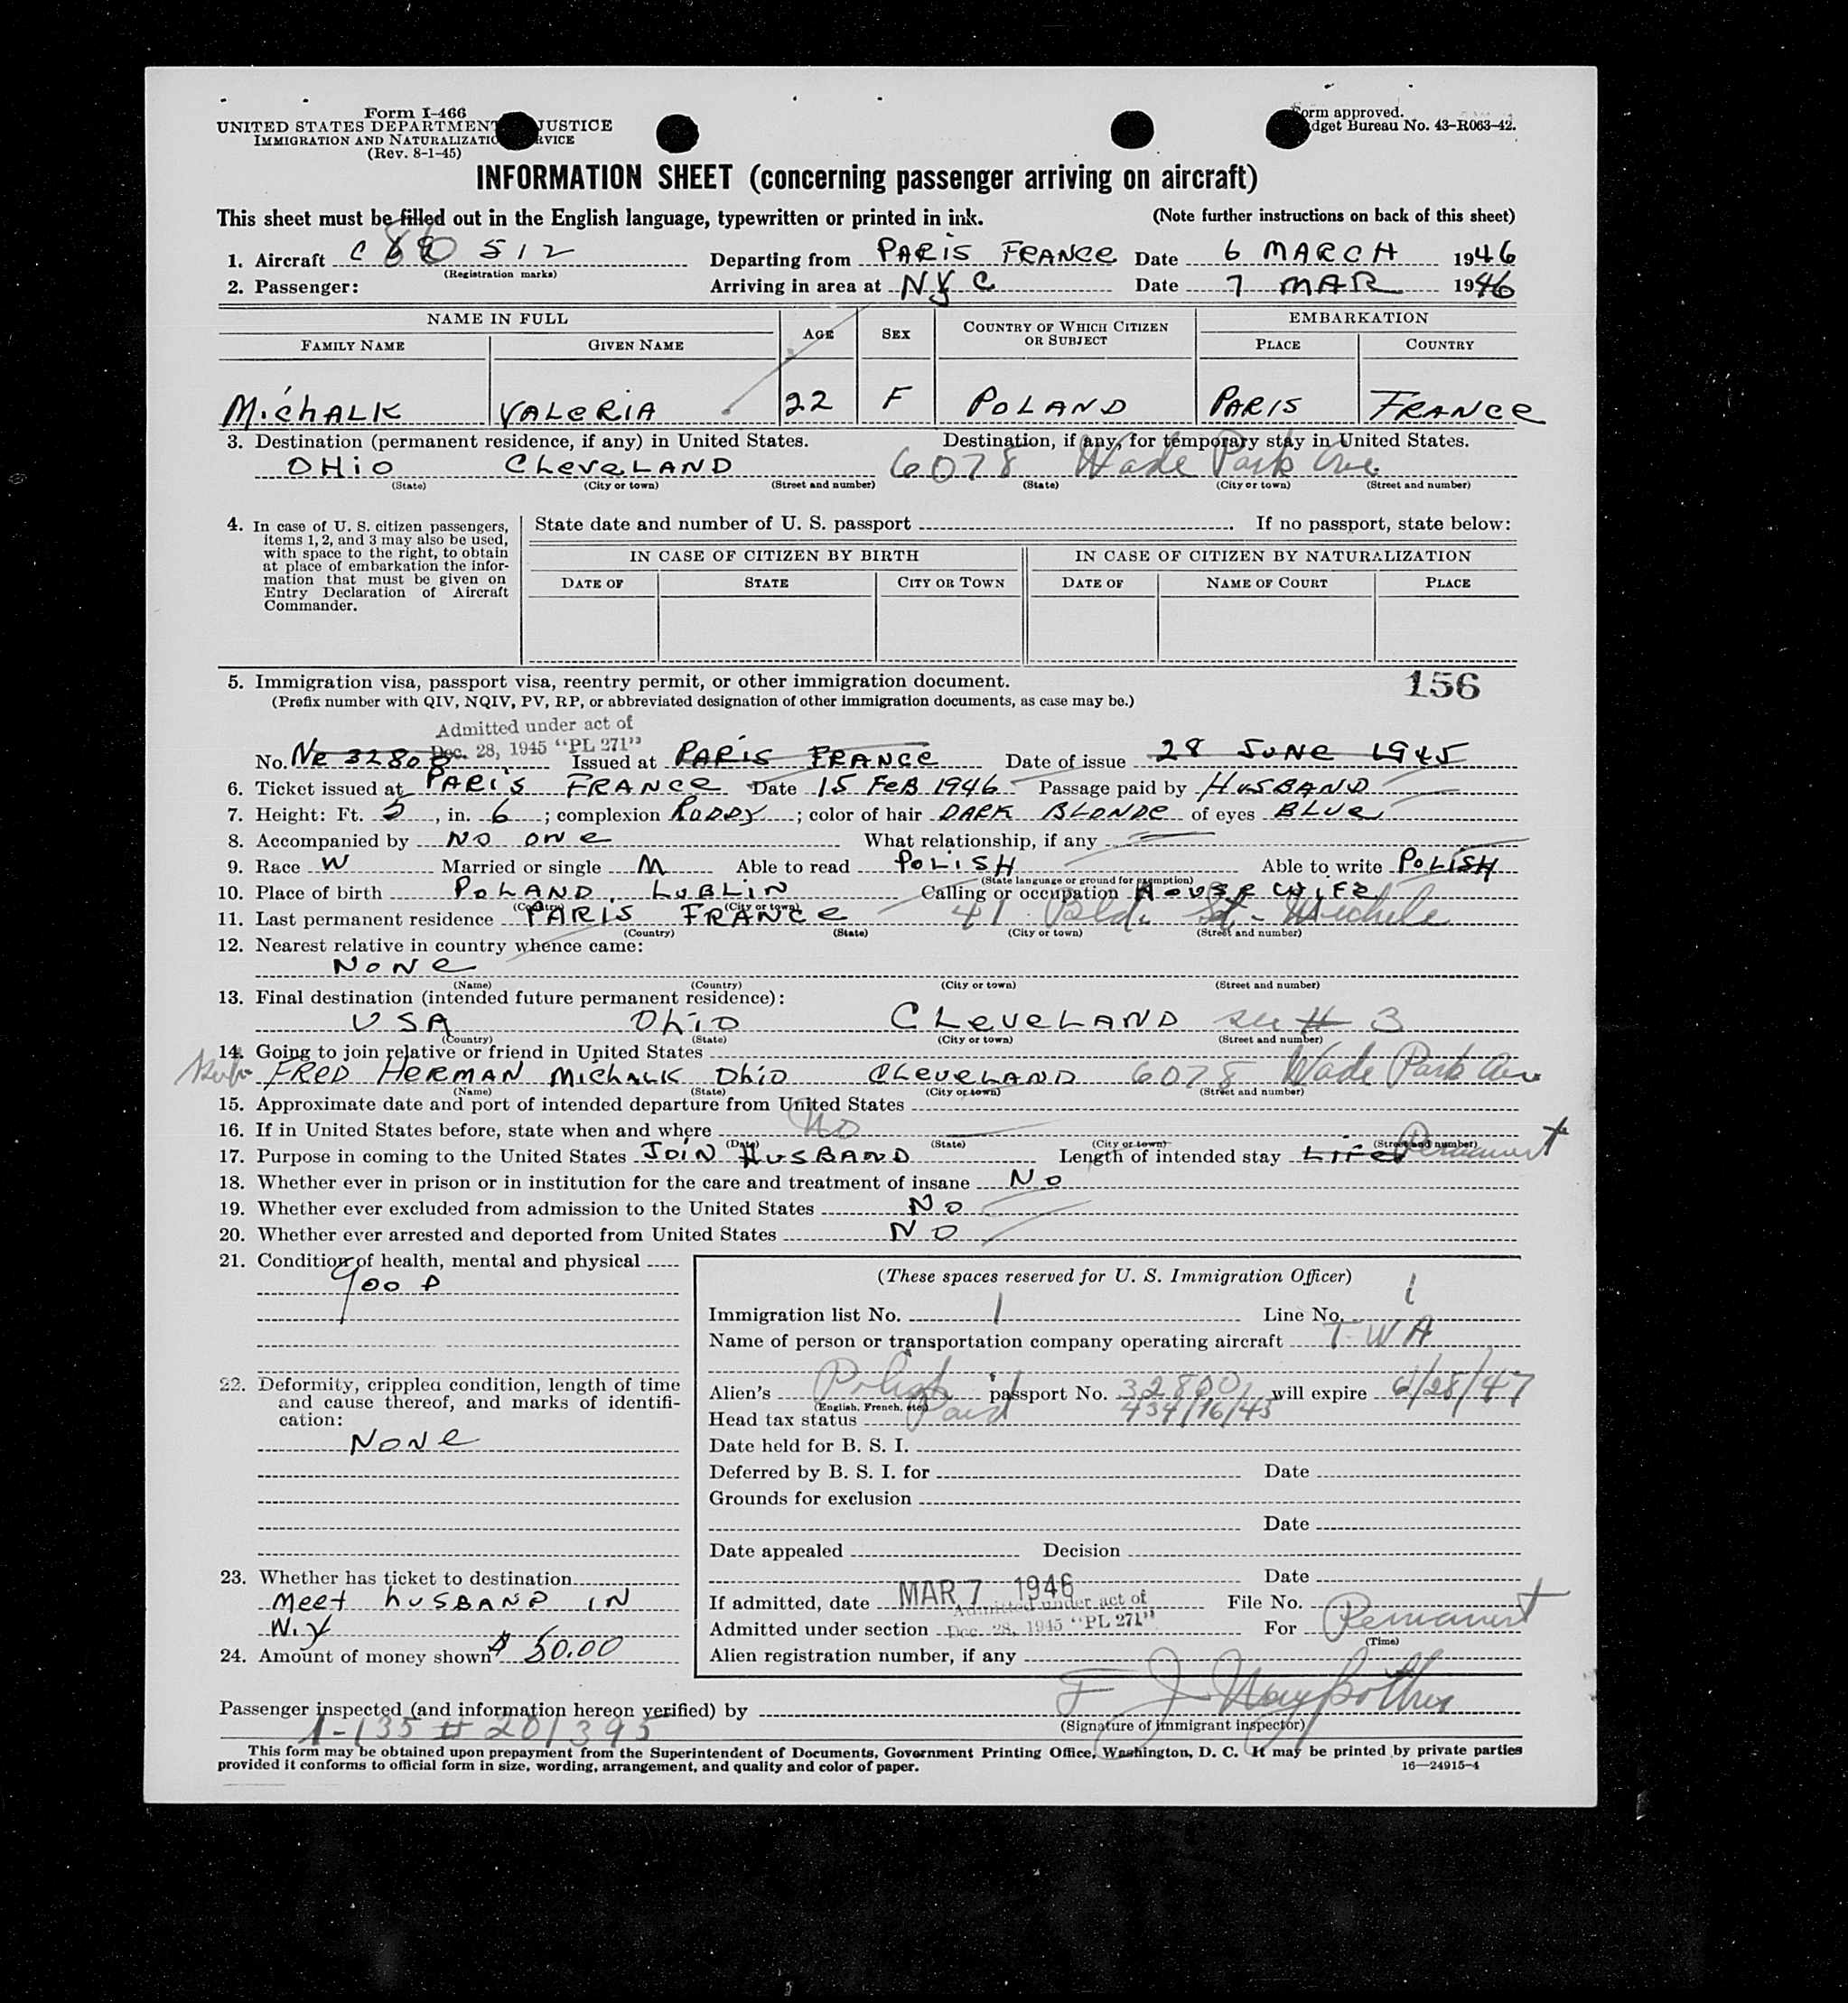 Form I-466
UNITED STATES DEPARTMENT JUSTICE
IMMIGRATION AND NATURALIZATIO RVICE
(Rev. 8-1-45)
orm approved.
dget Bureau No. 43-R063-42.
INFORMATION SHEET (concerning passenger arriving on aircraft)
This sheet must be filled out in the English language, typewritten or printed in ink. (Note further instructions on back of this sheet)
1. Aircraft C 512 Departing from PARIS FRANCE Date 6 MARCH 1946
(Registration marks)
2. Passenger: Arriving in area at NYC Date 7 MAR 1946
NAME IN FULL AGE SEX COUNTRY OF WHICH CITIZEN OR SUBJECT EMBARKATION
FAMILY NAME GIVEN NAME PLACE COUNTRY
MichALK VALERIA 22 F POLAND PARIS FRANCE
3. Destination (permanent residence, if any) in United States. Destination, if any, for temporary stay in United States.
OHiO CLeveLAND 6078 Wade Park Ave
(State) (City or town) (Street and number) (State) (City or town) (Street and number)
4. In case of U. S. citizen passengers, items 1, 2, and 3 may also be used, with space to the right, to obtain at place of embarkation the information that must be given on Entry Declaration of Aircraft Commander.
State date and number of U. S. passport If no passport, state below:
IN CASE OF CITIZEN BY BIRTH IN CASE OF CITIZEN BY NATURALIZATION
DATE OF STATE CITY OR TOWN DATE OF NAME OF COURT PLACE
5. Immigration visa, passport visa, reentry permit, or other immigration document. 156
(Prefix number with QIV, NQIV, PV, RP, or abbreviated designation of other immigration documents, as case may be.)
Admitted under act of
Dec. 28, 1945 "PL 271"
No. NR 32808 Issued at PARIS FRANCE Date of issue 28 JUNE 1945
6. Ticket issued at PARIS FRANCE Date 15 FEB 1946 Passage paid by HUSBAND
7. Height: Ft. 5, in. 6; complexion RUDDY; color of hair DARK BLONDE of eyes BLUE
8. Accompanied by NO ONE What relationship, if any
9. Race W Married or single M Able to read POLISH Able to write POLISH
(State language or ground for exemption)
10. Place of birth POLAND, LUBLIN Calling or occupation HOUSE WIFE
(Country) (City or town)
11. Last permanent residence PARIS FRANCE 41 Bld. St. Michele
(Country) (State) (City or town) (Street and number)
12. Nearest relative in country whence came:
NONE
(Name) (Country) (City or town) (Street and number)
13. Final destination (intended future permanent residence):
USA OhiO CLeveLAND see # 3
(Country) (State) (City or town) (Street and number)
14. Going to join relative or friend in United States
FRED HERMAN MichALK OhiO CLEVELAND 6078 Wade Park Ave
(Name) (State) (City or town) (Street and number)
15. Approximate date and port of intended departure from United States
16. If in United States before, state when and where No
(Date) (State) (City or town) (Street and number)
17. Purpose in coming to the United States JOIN HUSBAND Length of intended stay LIFE Permanent
18. Whether ever in prison or in institution for the care and treatment of insane NO
19. Whether ever excluded from admission to the United States NO
20. Whether ever arrested and deported from United States NO
21. Condition of health, mental and physical
good
22. Deformity, crippled condition, length of time and cause thereof, and marks of identification:
NONE
23. Whether has ticket to destination
Meet hUSBAND IN
N.Y
24. Amount of money shown $ 50.00
(These spaces reserved for U. S. Immigration Officer)
Immigration list No. 1 Line No. 1
Name of person or transportation company operating aircraft TWA
Alien's Polish passport No. will expire 6/28/47
(English, French, etc.)
Head tax status Paid 434/16/43
Date held for B. S. I.
Deferred by B. S. I. for Date
Grounds for exclusion
Date
Date appealed Decision
Date
If admitted, date MAR 7 1946 File No.
Admitted under act of
Admitted under section Dec. 28, 1945 "PL 271" For Permanent
(Time)
Alien registration number, if any
Passenger inspected (and information hereon verified) by
(Signature of immigrant inspector)
1-135 # 201395
This form may be obtained upon prepayment from the Superintendent of Documents, Government Printing Office, Washington, D. C. It may be printed by private parties
provided it conforms to official form in size, wording, arrangement, and quality and color of paper. 16—24915-4